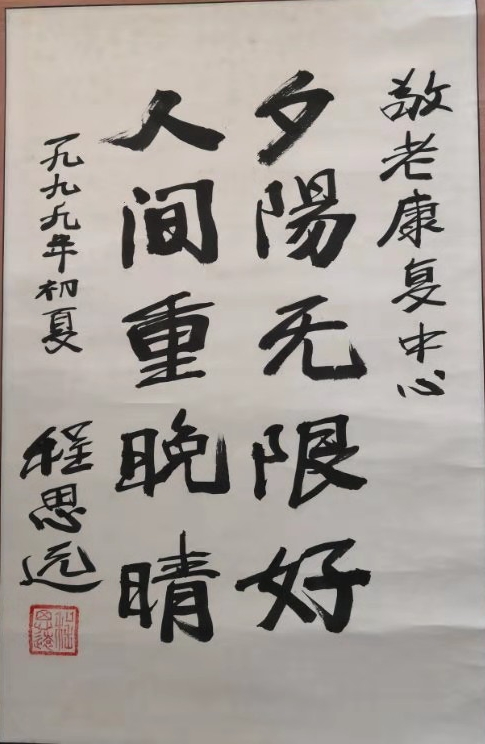 敬老康复中心
夕陽无限好
人间重晚晴
一九九九年初夏
程思远
程思远